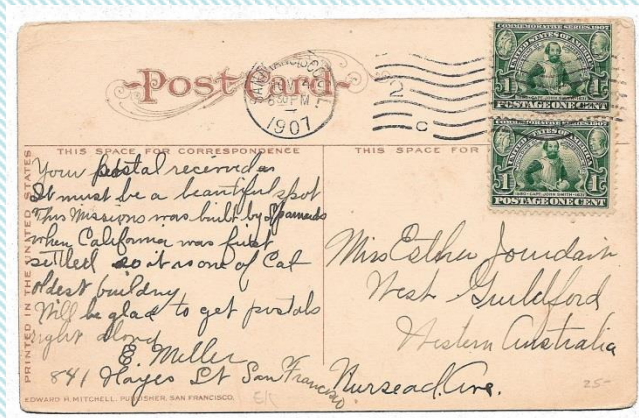 Post Card
SAN FRANCISCO, CAL.
630 PM
1907
2
COMMEMORATIVE SERIES 1907
UNITED STATES OF AMERICA
1 1
1580-CAPT. JOHN SMITH-1631
POSTAGE ONE CENT
COMMEMORATIVE SERIES 1907
UNITED STATES OF AMERICA
1 1
1580-CAPT. JOHN SMITH-1631
POSTAGE ONE CENT
THIS SPACE FOR CORRESPONDENCE
THIS SPACE FOR
PRINTED IN THE UNITED STATES
Your postal received
It must be a beautiful spot
This Missions was built by Spaniards
when California was first
settled so it is one of Cal
oldest building
Will be glad to get postals
right along
Miller
841 Hayes St San Francisco
Miss Esther Jourdain
West Guildford
Western Australia
Nursead. Ave.
EDWARD H. MITCHELL, PUBLISHER, SAN FRANCISCO.
25-